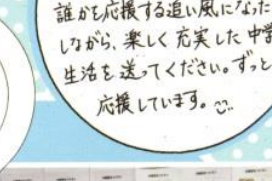 誰かを応援する追い風になった
しながら、楽しく充実した中学
生活を送ってください。ずっと
応援しています。